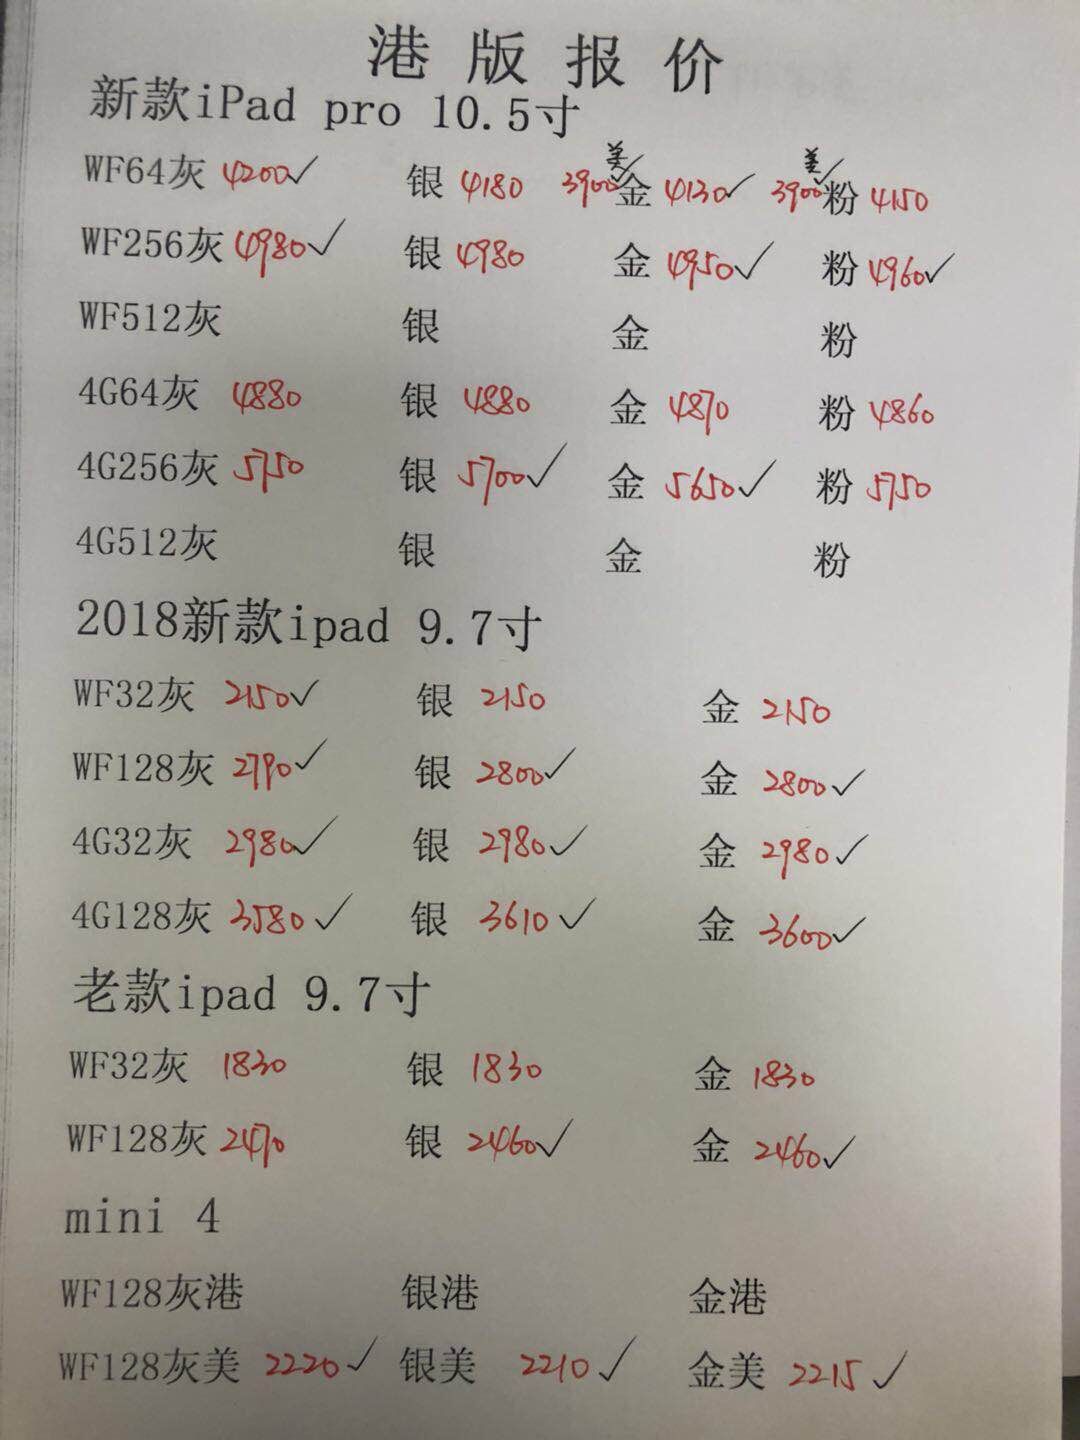 港版报价
新款iPad pro 10.5寸
WF64灰 4200✓ 银 4180 3900美✓ 金 4130✓ 3900美✓ 粉 4150
WF256灰 4980✓ 银 4980 金 4950✓ 粉 4960✓
WF512灰 银 金 粉
4G64灰 4880 银 4880 金 4870 粉 4860
4G256灰 5750 银 5700✓ 金 5650✓ 粉 5750
4G512灰 银 金 粉
2018新款ipad 9.7寸
WF32灰 2150✓ 银 2150 金 2150
WF128灰 2790✓ 银 2800✓ 金 2800✓
4G32灰 2980✓ 银 2980✓ 金 2980✓
4G128灰 3580✓ 银 3610✓ 金 3600✓
老款ipad 9.7寸
WF32灰 1830 银 1830 金 1830
WF128灰 2470 银 2460✓ 金 2460✓
mini 4
WF128灰港 银港 金港
WF128灰美 2220✓ 银美 2210✓ 金美 2215✓